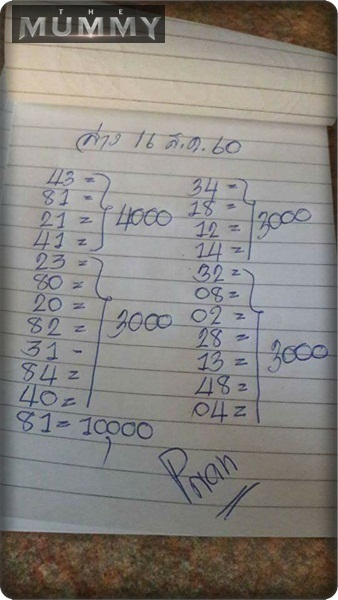 THE
MUMMY
ล่าง 16 ส.ค. 60
43 =
81 =
21 =
41 =
4000
23 =
80 =
20 =
82 =
31 -
84 =
40 =
3000
81 = 10000
34 =
18 =
12 =
14 =
3000
32 =
08 =
02 =
28 =
13 =
48 =
04 =
3000